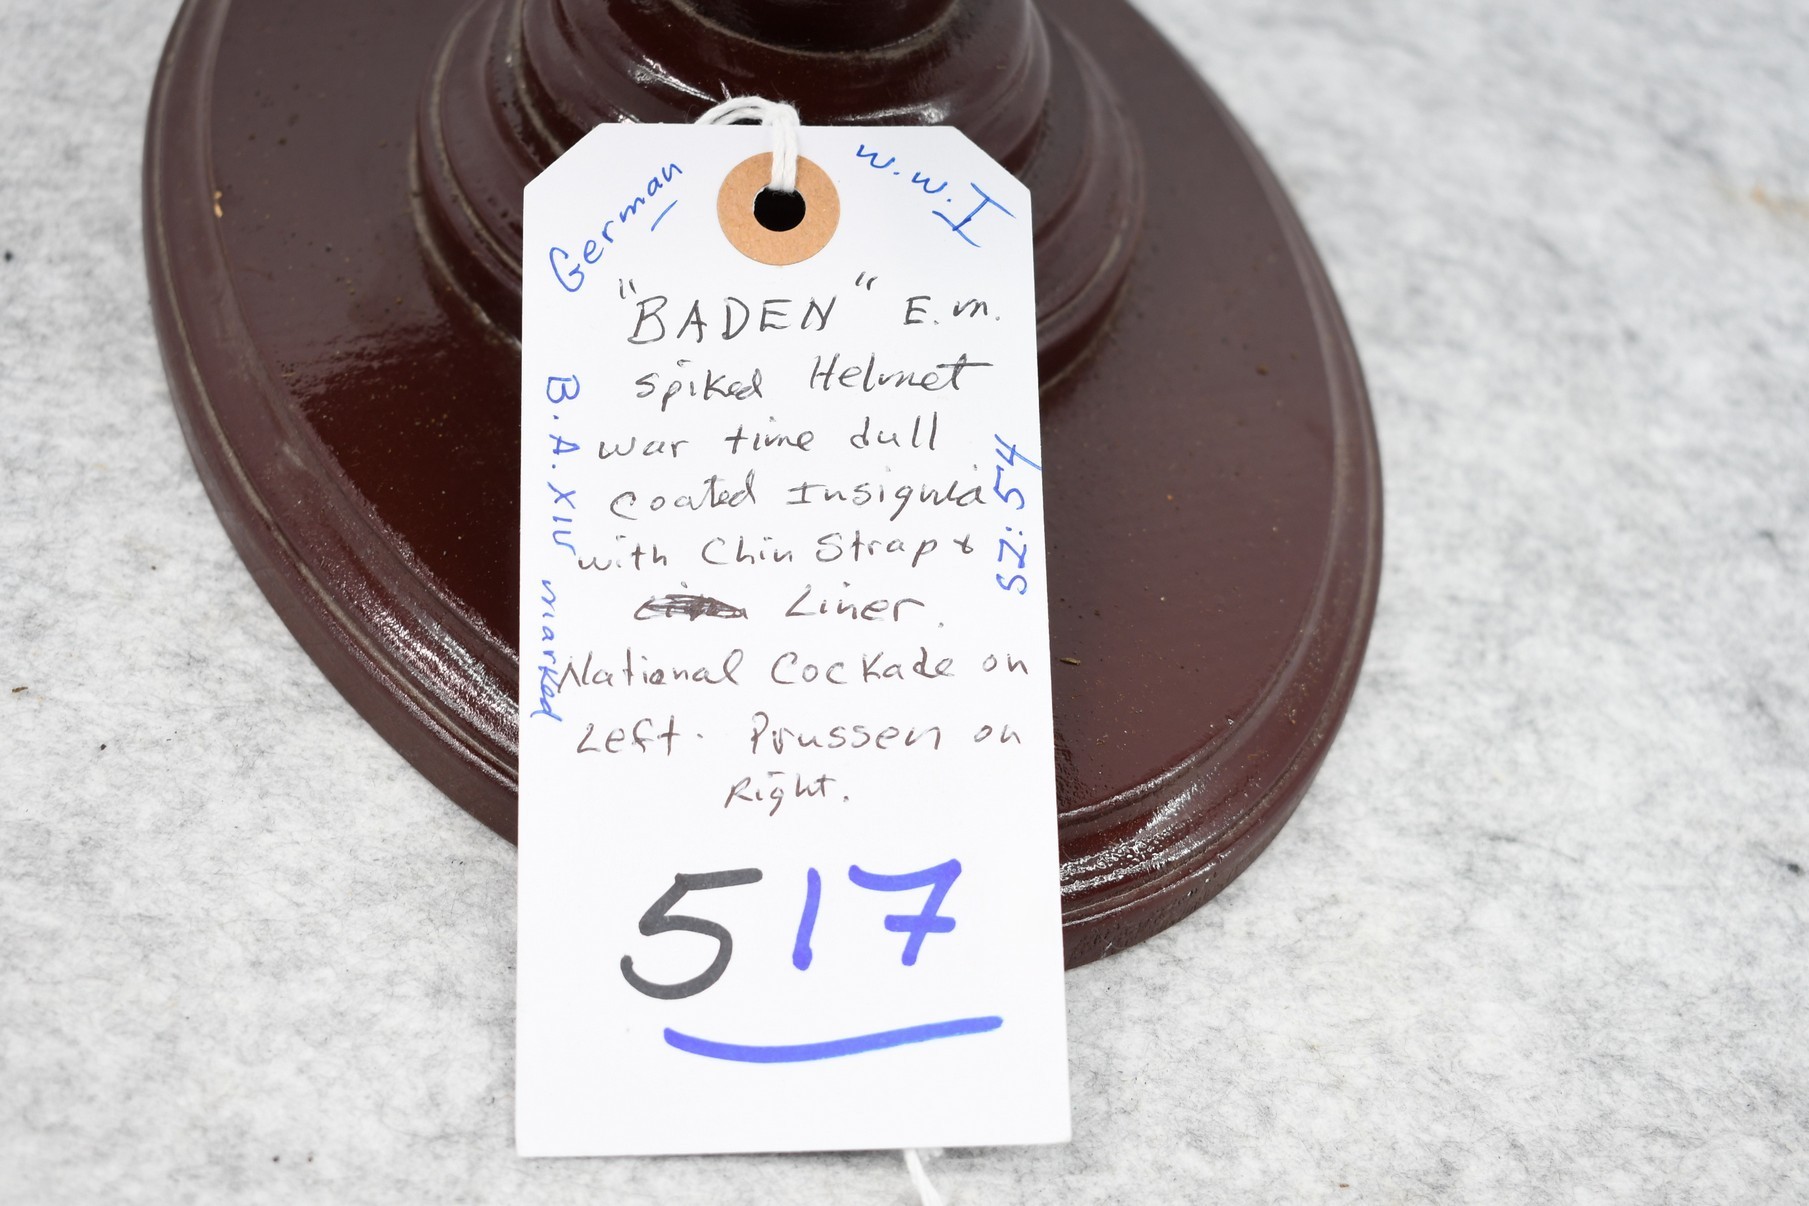 German
W.W.I
"BADEN" E.M.
spiked Helmet
war time dull
coated Insignia
with Chin Strap &
Liner.
National Cockade on
Left. Prussen on
Right.
B.A. XIV marked
SZ: 54
517